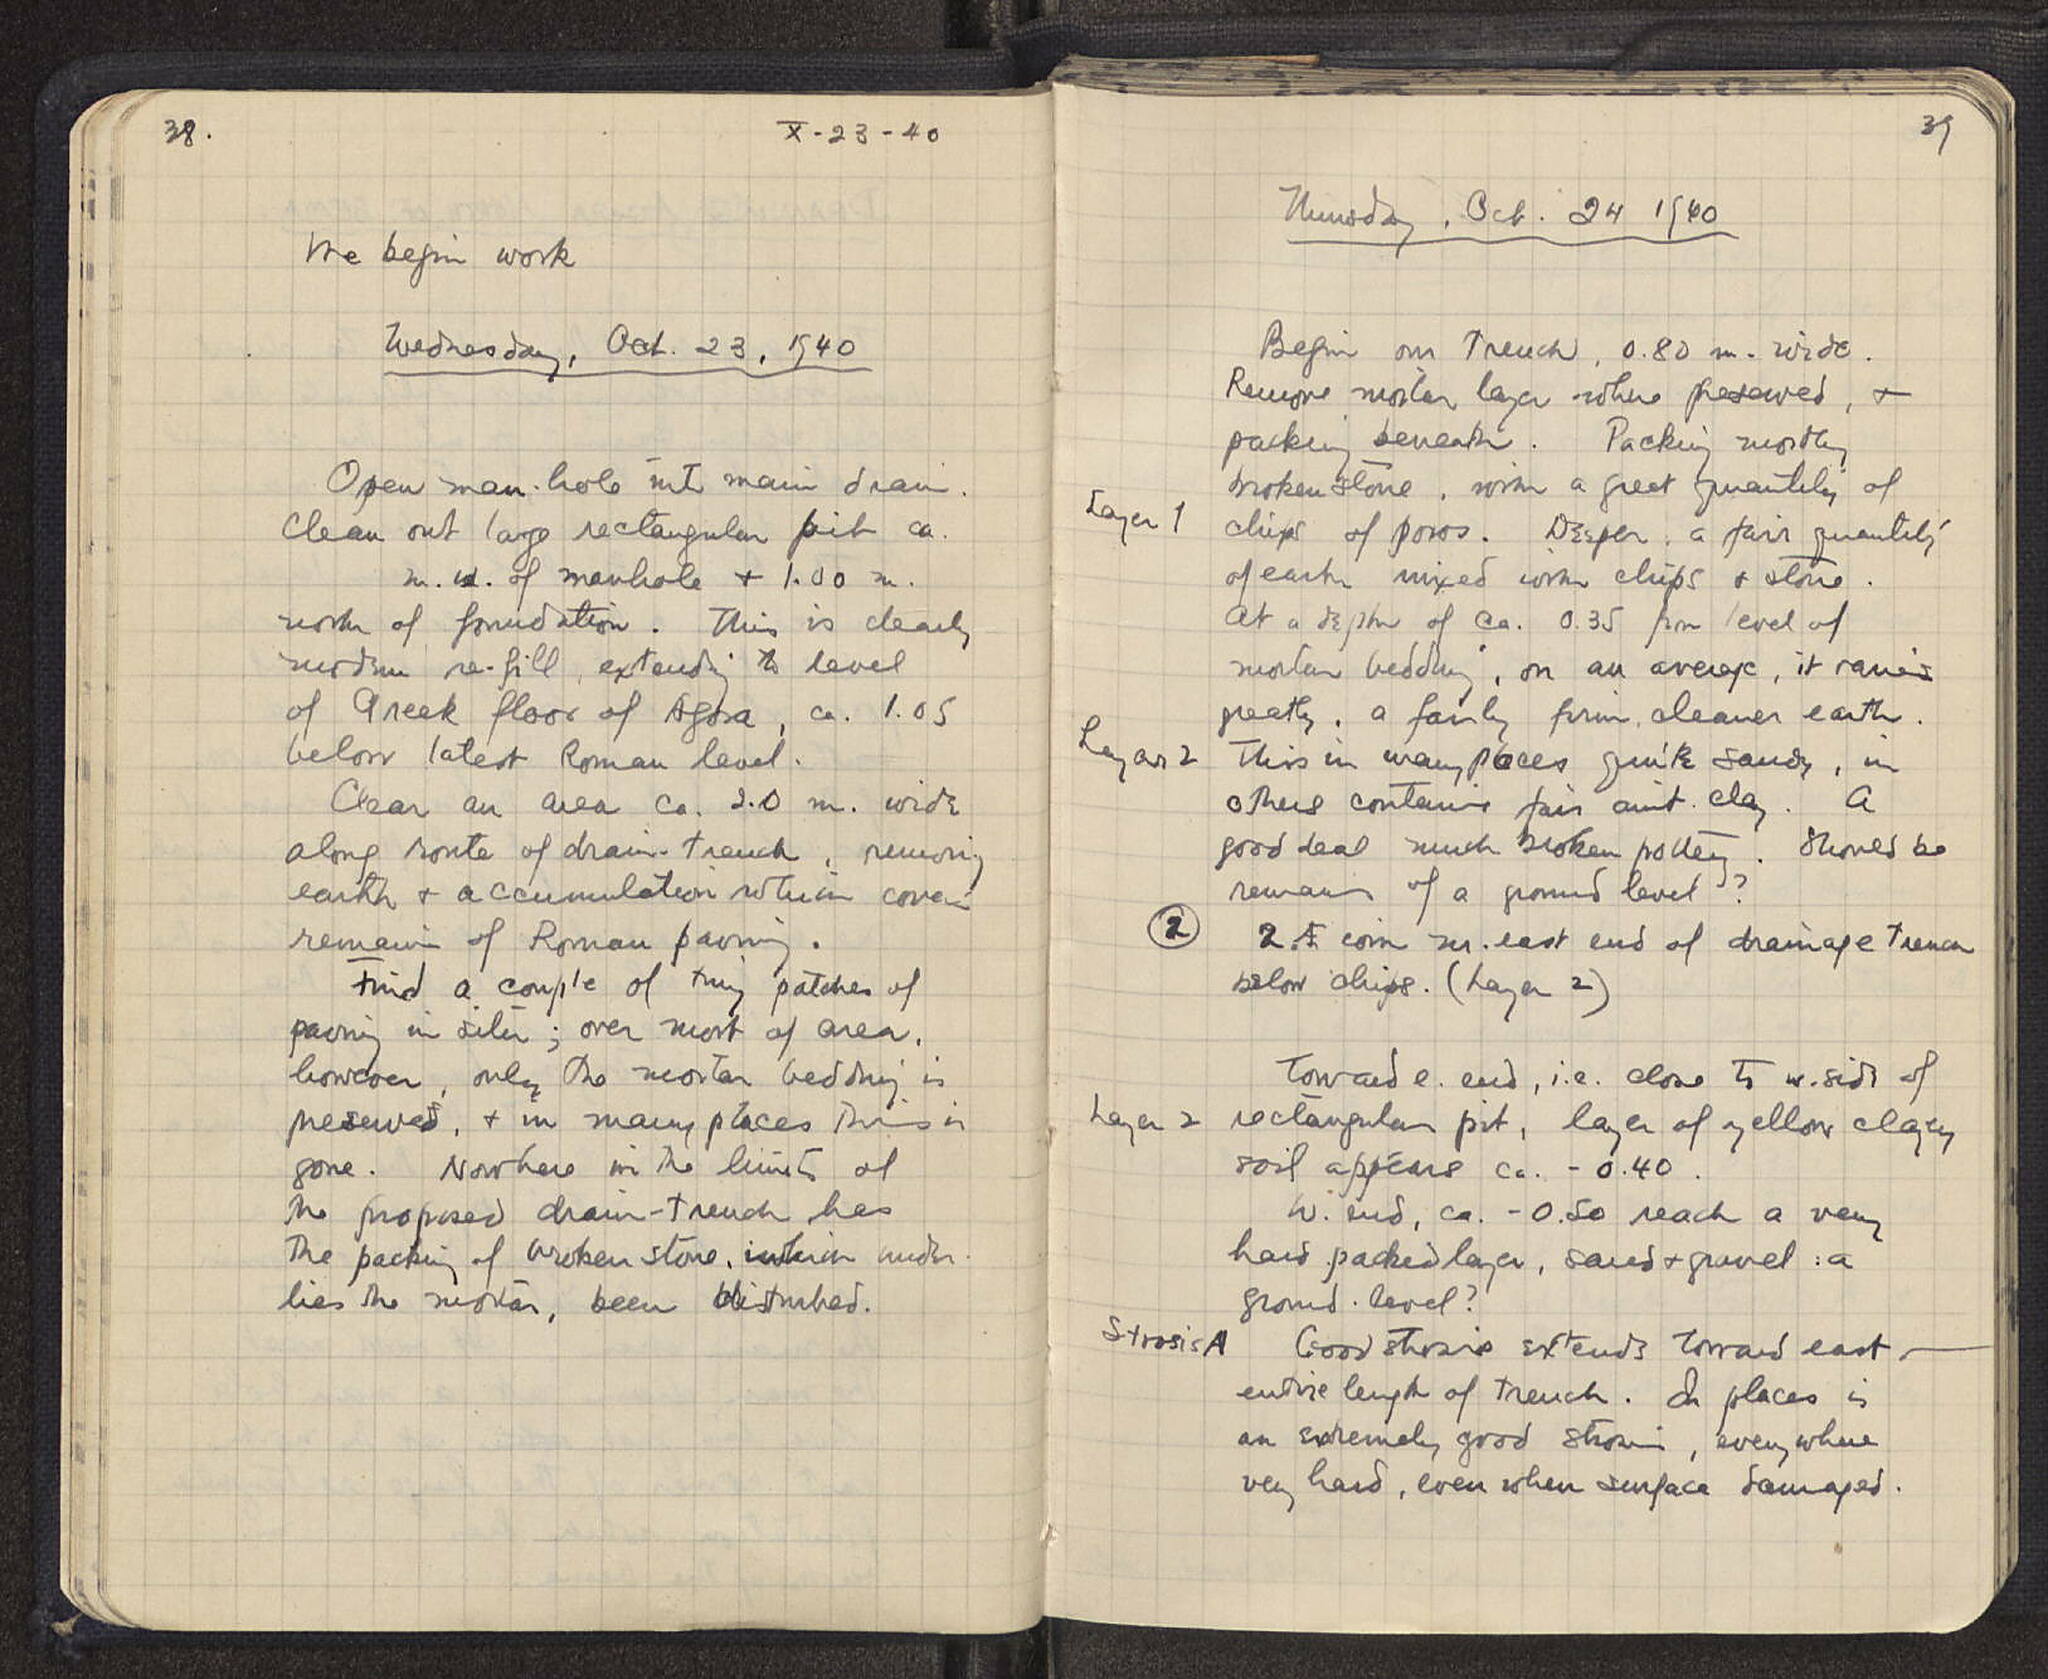 38.
X-23-40
We begin work
Wednesday, Oct. 23, 1940
Open man-hole into main drain.
Clean out large rectangular pit ca.
m. w. of manhole + 1.00 m.
north of foundation. This is clearly
modern re-fill, extending to level
of Greek floor of Agora, ca. 1.05
below latest Roman level.
Clear an area ca. 2.0 m. wide
along route of drain-trench, removing
earth + accumulation which covers
remains of Roman paving.
Find a couple of tiny patches of
paving in situ; over most of area,
however, only the mortar bedding is
preserved, + in many places this is
gone. Nowhere in the limits of
the proposed drain-trench has
the packing of broken stone, which under-
lies the mortar, been disturbed.
39
Thursday, Oct. 24 1940
Begin on trench, 0.80 m. wide.
Remove mortar layer where preserved, +
packing beneath. Packing mostly
broken stone, with a great quantity of
Layer 1 chips of poros. Deeper, a fair quantity
of earth mixed with chips + stone.
At a depth of ca. 0.35 from level of
mortar bedding, on an average, it varies
greatly, a fairly firm, cleaner earth.
Layer 2 This in many places quite sandy, in
others contains fair amt. clay. A
good deal much broken pottery. Should be
remains of a ground level?
② 2 Æ coin nr. east end of drainage trench
below chips. (Layer 2)
Toward e. end, i.e. close to w. side of
Layer 2 rectangular pit, layer of yellow clayey
soil appears ca. -0.40.
W. end, ca. -0.50 reach a very
hard packed layer, sand + gravel: a
ground-level?
Strosis A Good strosis extends toward east —
entire length of trench. In places is
an extremely good strosis, everywhere
very hard, even when surface damaged.